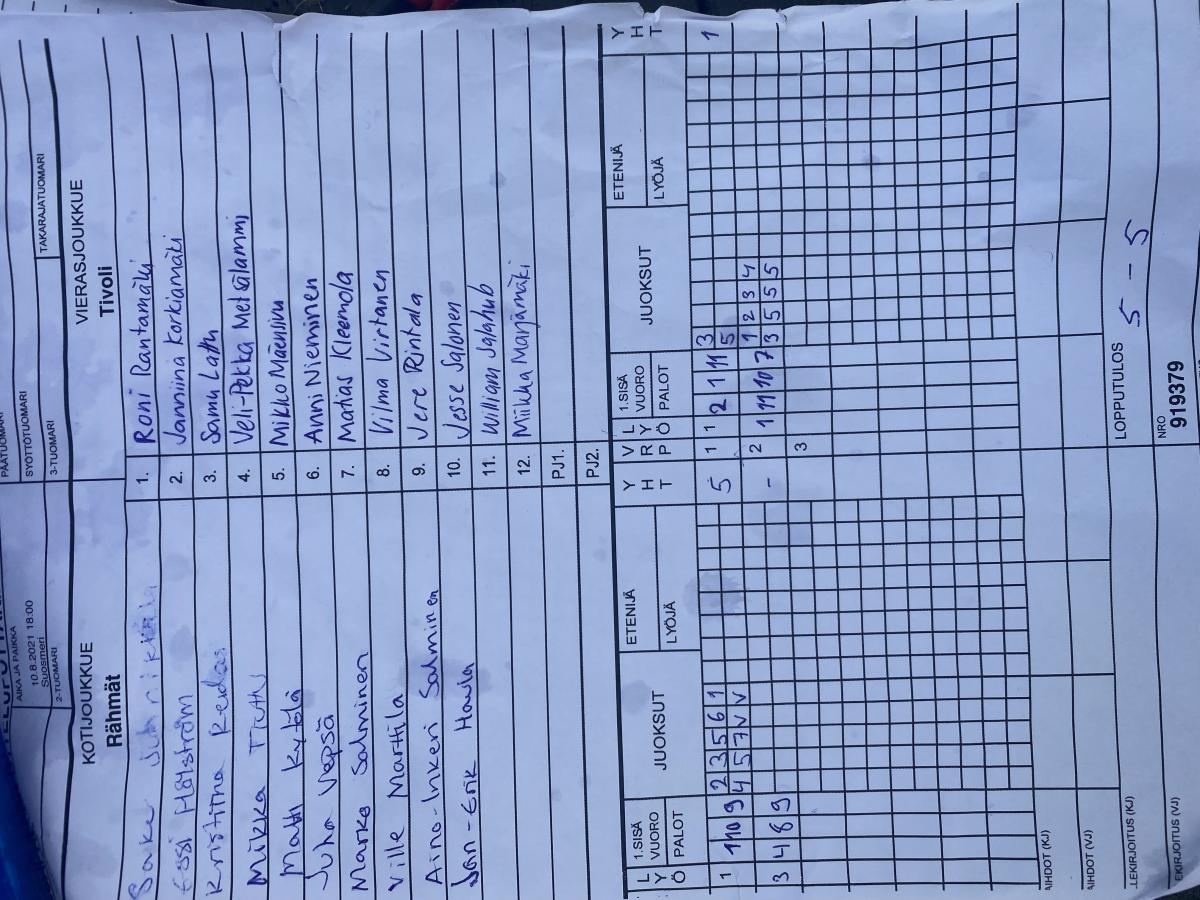 PÄÄTUOMARI
AIKA JA PAIKKA
10.8.2021 18:00
Suosmeri
SYÖTTÖTUOMARI
2-TUOMARI
3-TUOMARI
TAKARAJATUOMARI
KOTIJOUKKUE
Rähmät
VIERASJOUKKUE
Tivoli
1. Roni Rantamäki
Essi Hölström
2. Janniina Korkiamäki
Kristiina
3. Samu Lattu
Mikka
4. Veli-Pekka Metsälammi
Matti Kytölä
5. Mikko Mäenluvu
Juha Vepsä
6. Anni Nieminen
Marko Salminen
7. Matias Kleemola
Ville Marttila
8. Vilma Virtanen
Aino-Inkeri Salminen
9. Jere Rintala
Jan-Erik Havla
10. Jesse Salonen
11. William Jalahub
12. Miikka Marjamäki
PJ1.
PJ2.
L Y Ö 1.SISÄ VUORO PALOT JUOKSUT ETENIJÄ LYÖJÄ Y H T V R P L Y Ö 1.SISÄ VUORO PALOT JUOKSUT ETENIJÄ LYÖJÄ Y H T
2 3 5 6 1 3
1 1 10 9 4 5 7 V V 5 1 1 2 1 11 5 1
2 1 2 3 4
3 4 8 9 - 11 10 7 3 5 5 5
3
LOPPUTULOS 5 - 5
NRO
919379